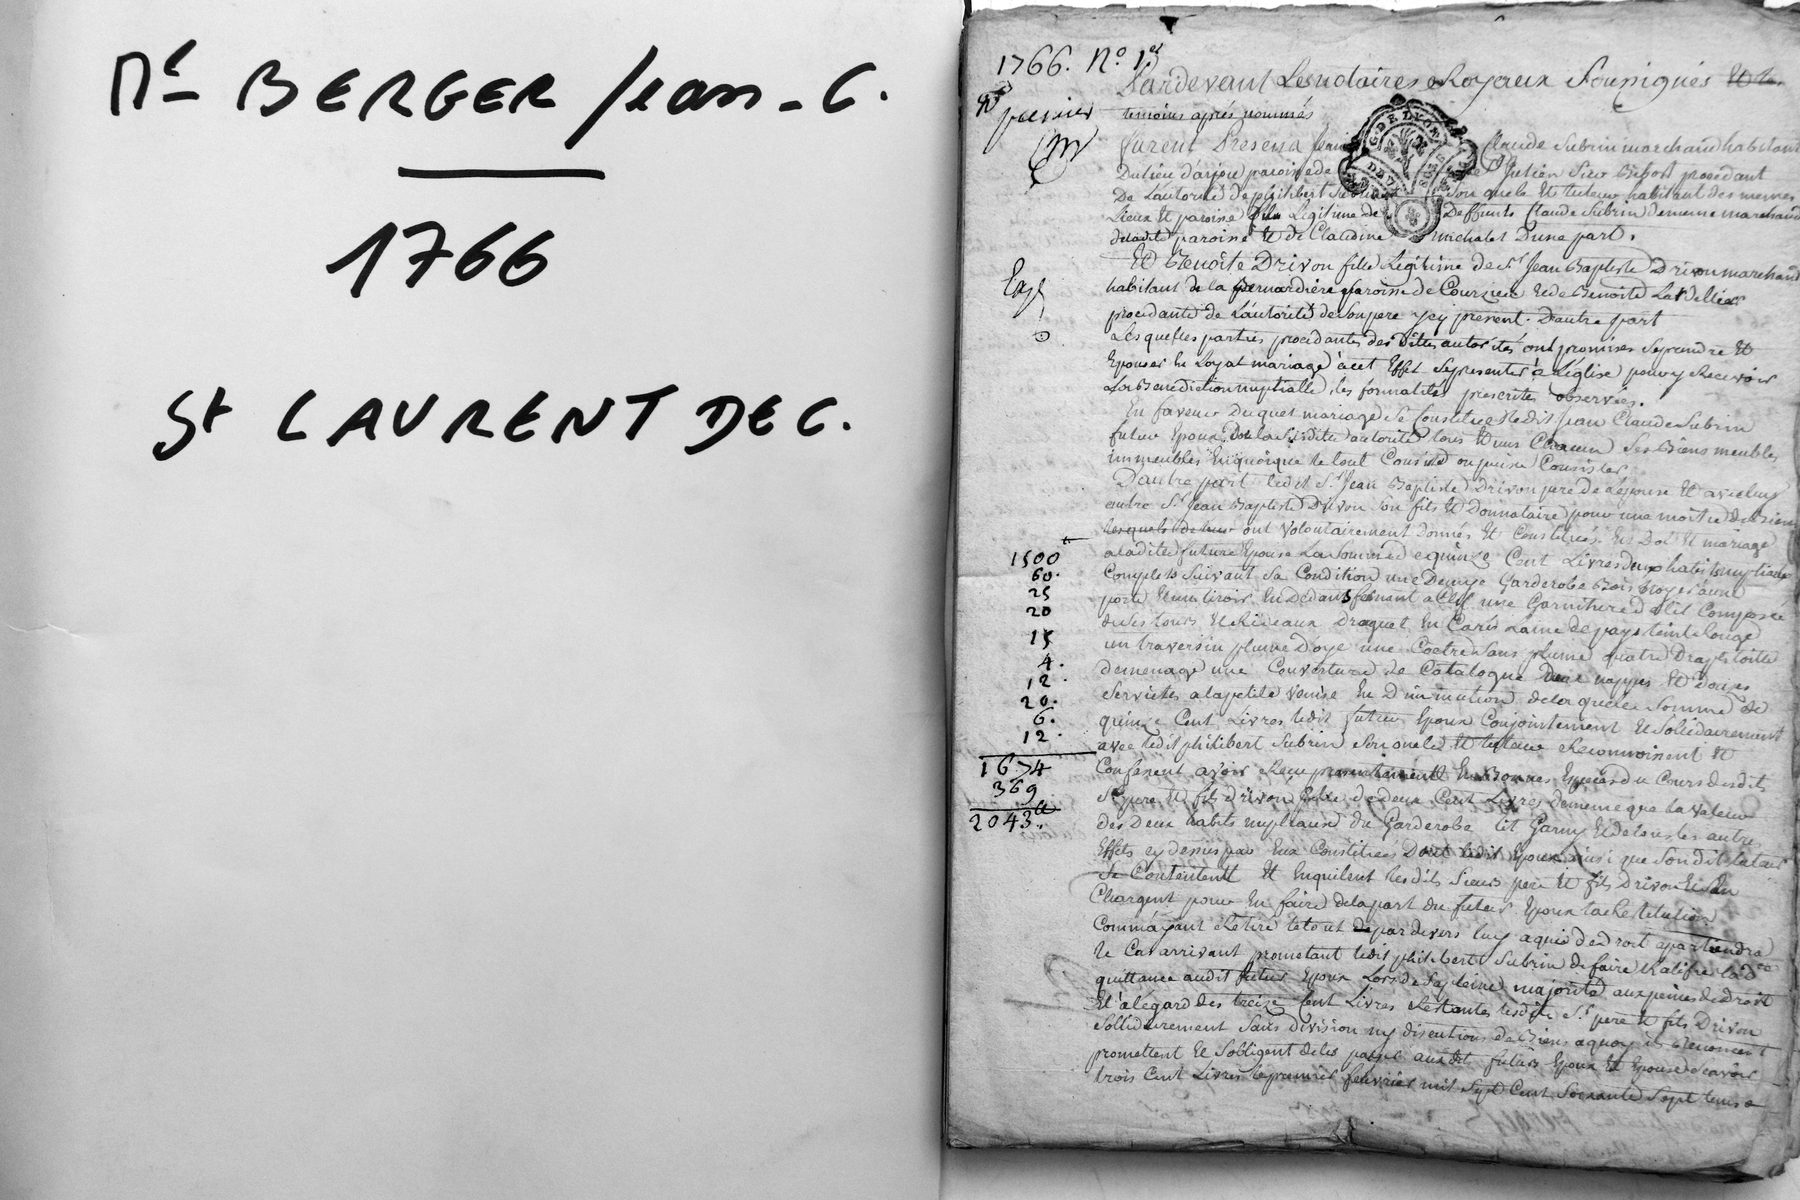 Me BERGER Jean-C.
1766
St LAURENT DE C.
1766. No. 1er
Pardevant Les notaires Royaux Soussignés Et les
janvier
temoins après nommés
furent Presens Jean Claude Subrin marchand habitant
Du lieu d'arjou paroisse de St Julien Sur Bibost procedant
De L'autorité de philibert Subrin Son oncle Et tuteur habitant des memes
Lieux Et paroisse fils Legitime de Deffunts Claude Subrin dememe marchand
deladite paroisse Et de Claudine michalet Dune part.
Et Benoite Drivon fille Legitime de Sr Jean Baptiste Drivon marchand
habitant de la paroisse de Courzieu Et de Benoite
procedante de L'autorité de Son pere icy present. D'autre part
Lesquelles parties procedantes des dittes autorités ont promises Se prendre Et
Epouser En Loyal mariage à cet Effet Se presenter à L'église pour y Recevoir
La Benediction nuptialle, les formalités prescrites observées.
En faveur Duquel mariage Se Constitue Ledit Jean Claude Subrin
futur Epoux De la Susditte autorité tous Et uns Chacun Ses Biens meubles
immeubles En quoique le tout Consiste ou puisse Consister
D'autre part ledit Sr Jean Baptiste Drivon pere de L'epouse Et avec luy
autre Sr Jean Baptiste Drivon Son fils Et Donnataire pour une moitié de
ont volontairement donnés Et Constitués En Dot Et mariage
1500
aladite future Epouse La Somme de quinze Cent Livres deux habits nuptiaux
60.
Complets Suivant Sa Condition une Garderobe Bois noyer à une
25
porte Et un tiroir En Dedans fermant a Clef une Garniture de lit Composée
20
de Ses tours Et Rideaux Droguet En Cadis Laine de pays teinte Rouge
15
un traversin plume D'oye une Coetre Sans plume quatre Draps toille
4.
de menage une Couverture de Catalogne nappes Et
12.
Serviettes a la petite venise En Diminution de laquelle Somme de
20.
quinze Cent Livres ledit futur Epoux Conjointement Et Solidairement
6.
avec ledit philibert Subrin Son oncle Et tuteur Reconnoissent Et
12.
Confessent avoir Recu presentement En Bonnes Especes du Cours desdits
1674
Srs pere Et fils drivon Celle de deux Cent Livres de meme que la valeur
369
des Deux habits nuptiaux du Garderobe lit Garny Et de tous les autres
2043
Effets cy dessus par Eux Constitués Dont ledit Epoux ainsi que Sondit tuteur
Se Contentent Et En quittent lesdits Sieurs pere Et fils Drivon Et S'en
Chargent pour En faire de la part du futur Epoux la Restitution
Comme ayant Retiré le tout pardevers luy a qui de droit apartiendra
le Cas arrivant promettant ledit philibert Subrin de faire Ratifier la de
quittance audit futur Epoux Lors de Sa pleine majorité aux peines de droit
Et a legard des treize Cent Livres Restantes lesdits Srs pere Et fils Drivon
Sollidairement Sans division ny discution de Biens a quoy ils Renoncent
promettent Et S'obligent de les payer audit futurs Epoux Et Epouse Scavoir
trois Cent Livres le premier fevrier mil Sept Cent Soixante Sept